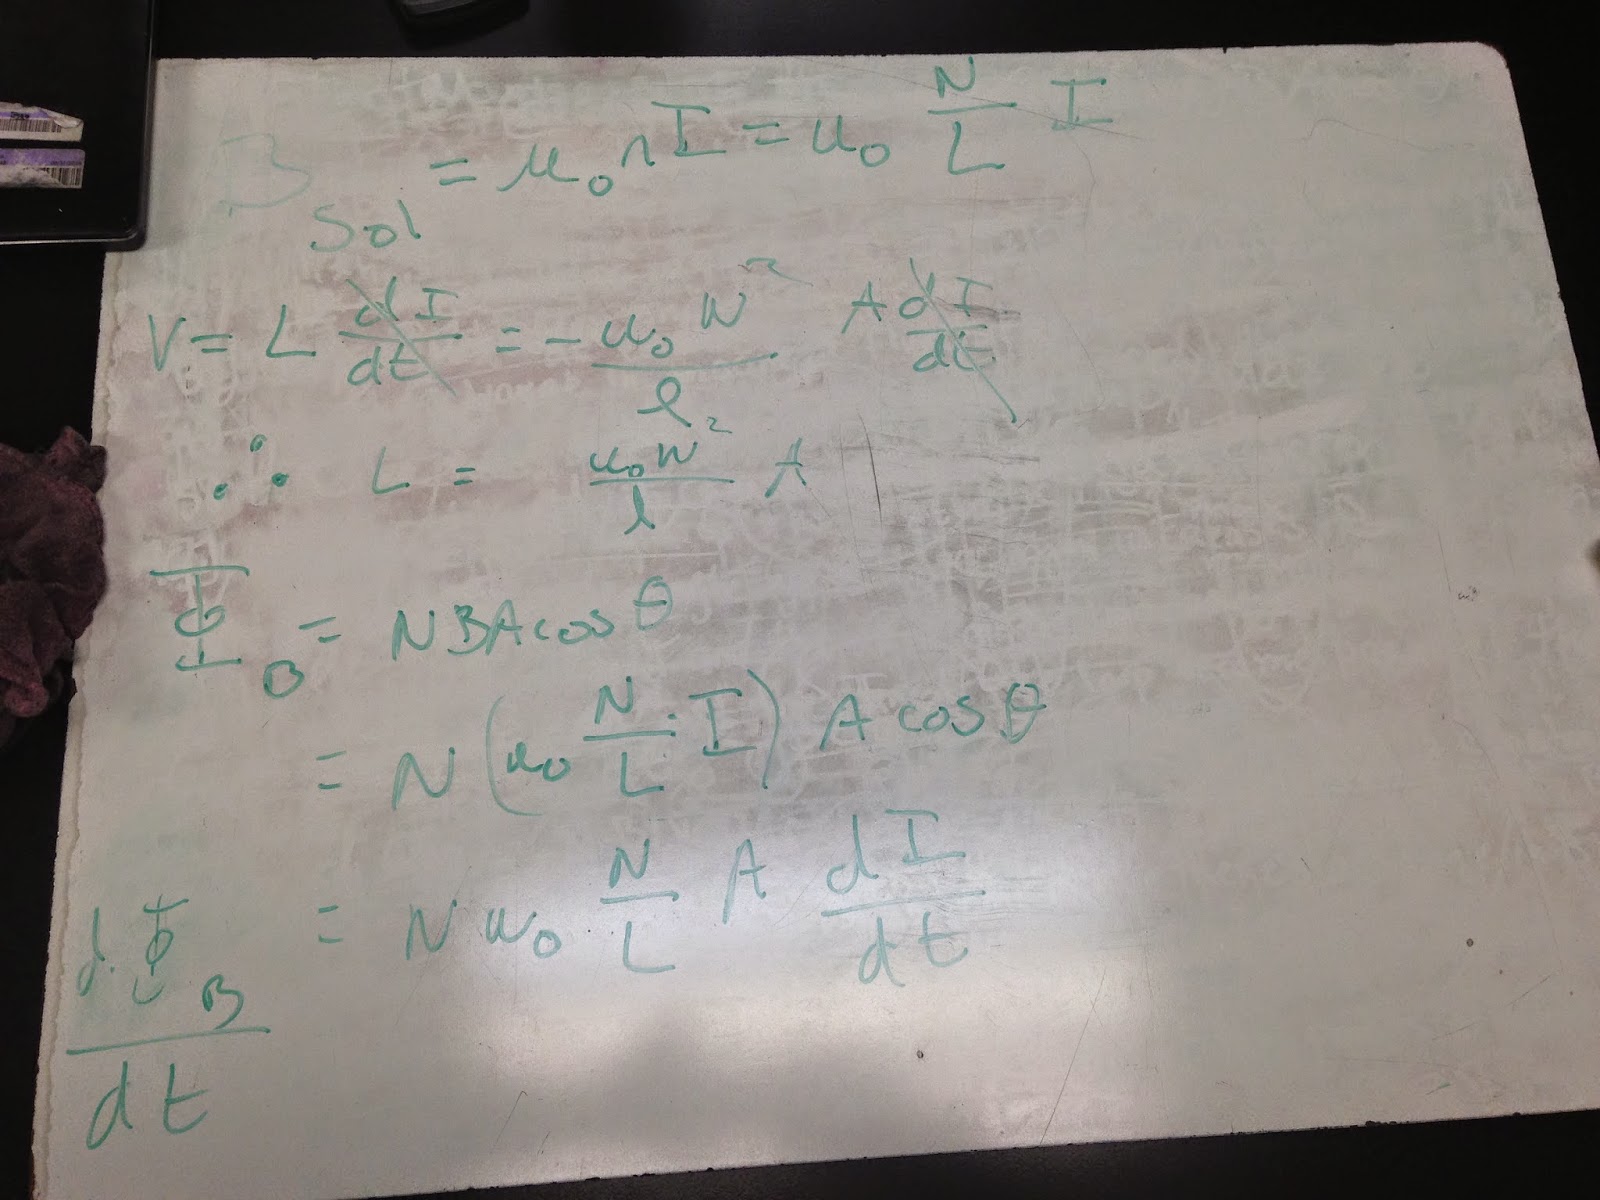 B sol = μ₀ n I = u₀ N/L I
V = L dI/dt = - u₀ N²/l A dI/dt
∴ L = u₀ N²/l A
Φ_B = NBA cos θ
= N (u₀ N/L · I) A cos θ
dΦ_B/dt = N u₀ N/L A dI/dt